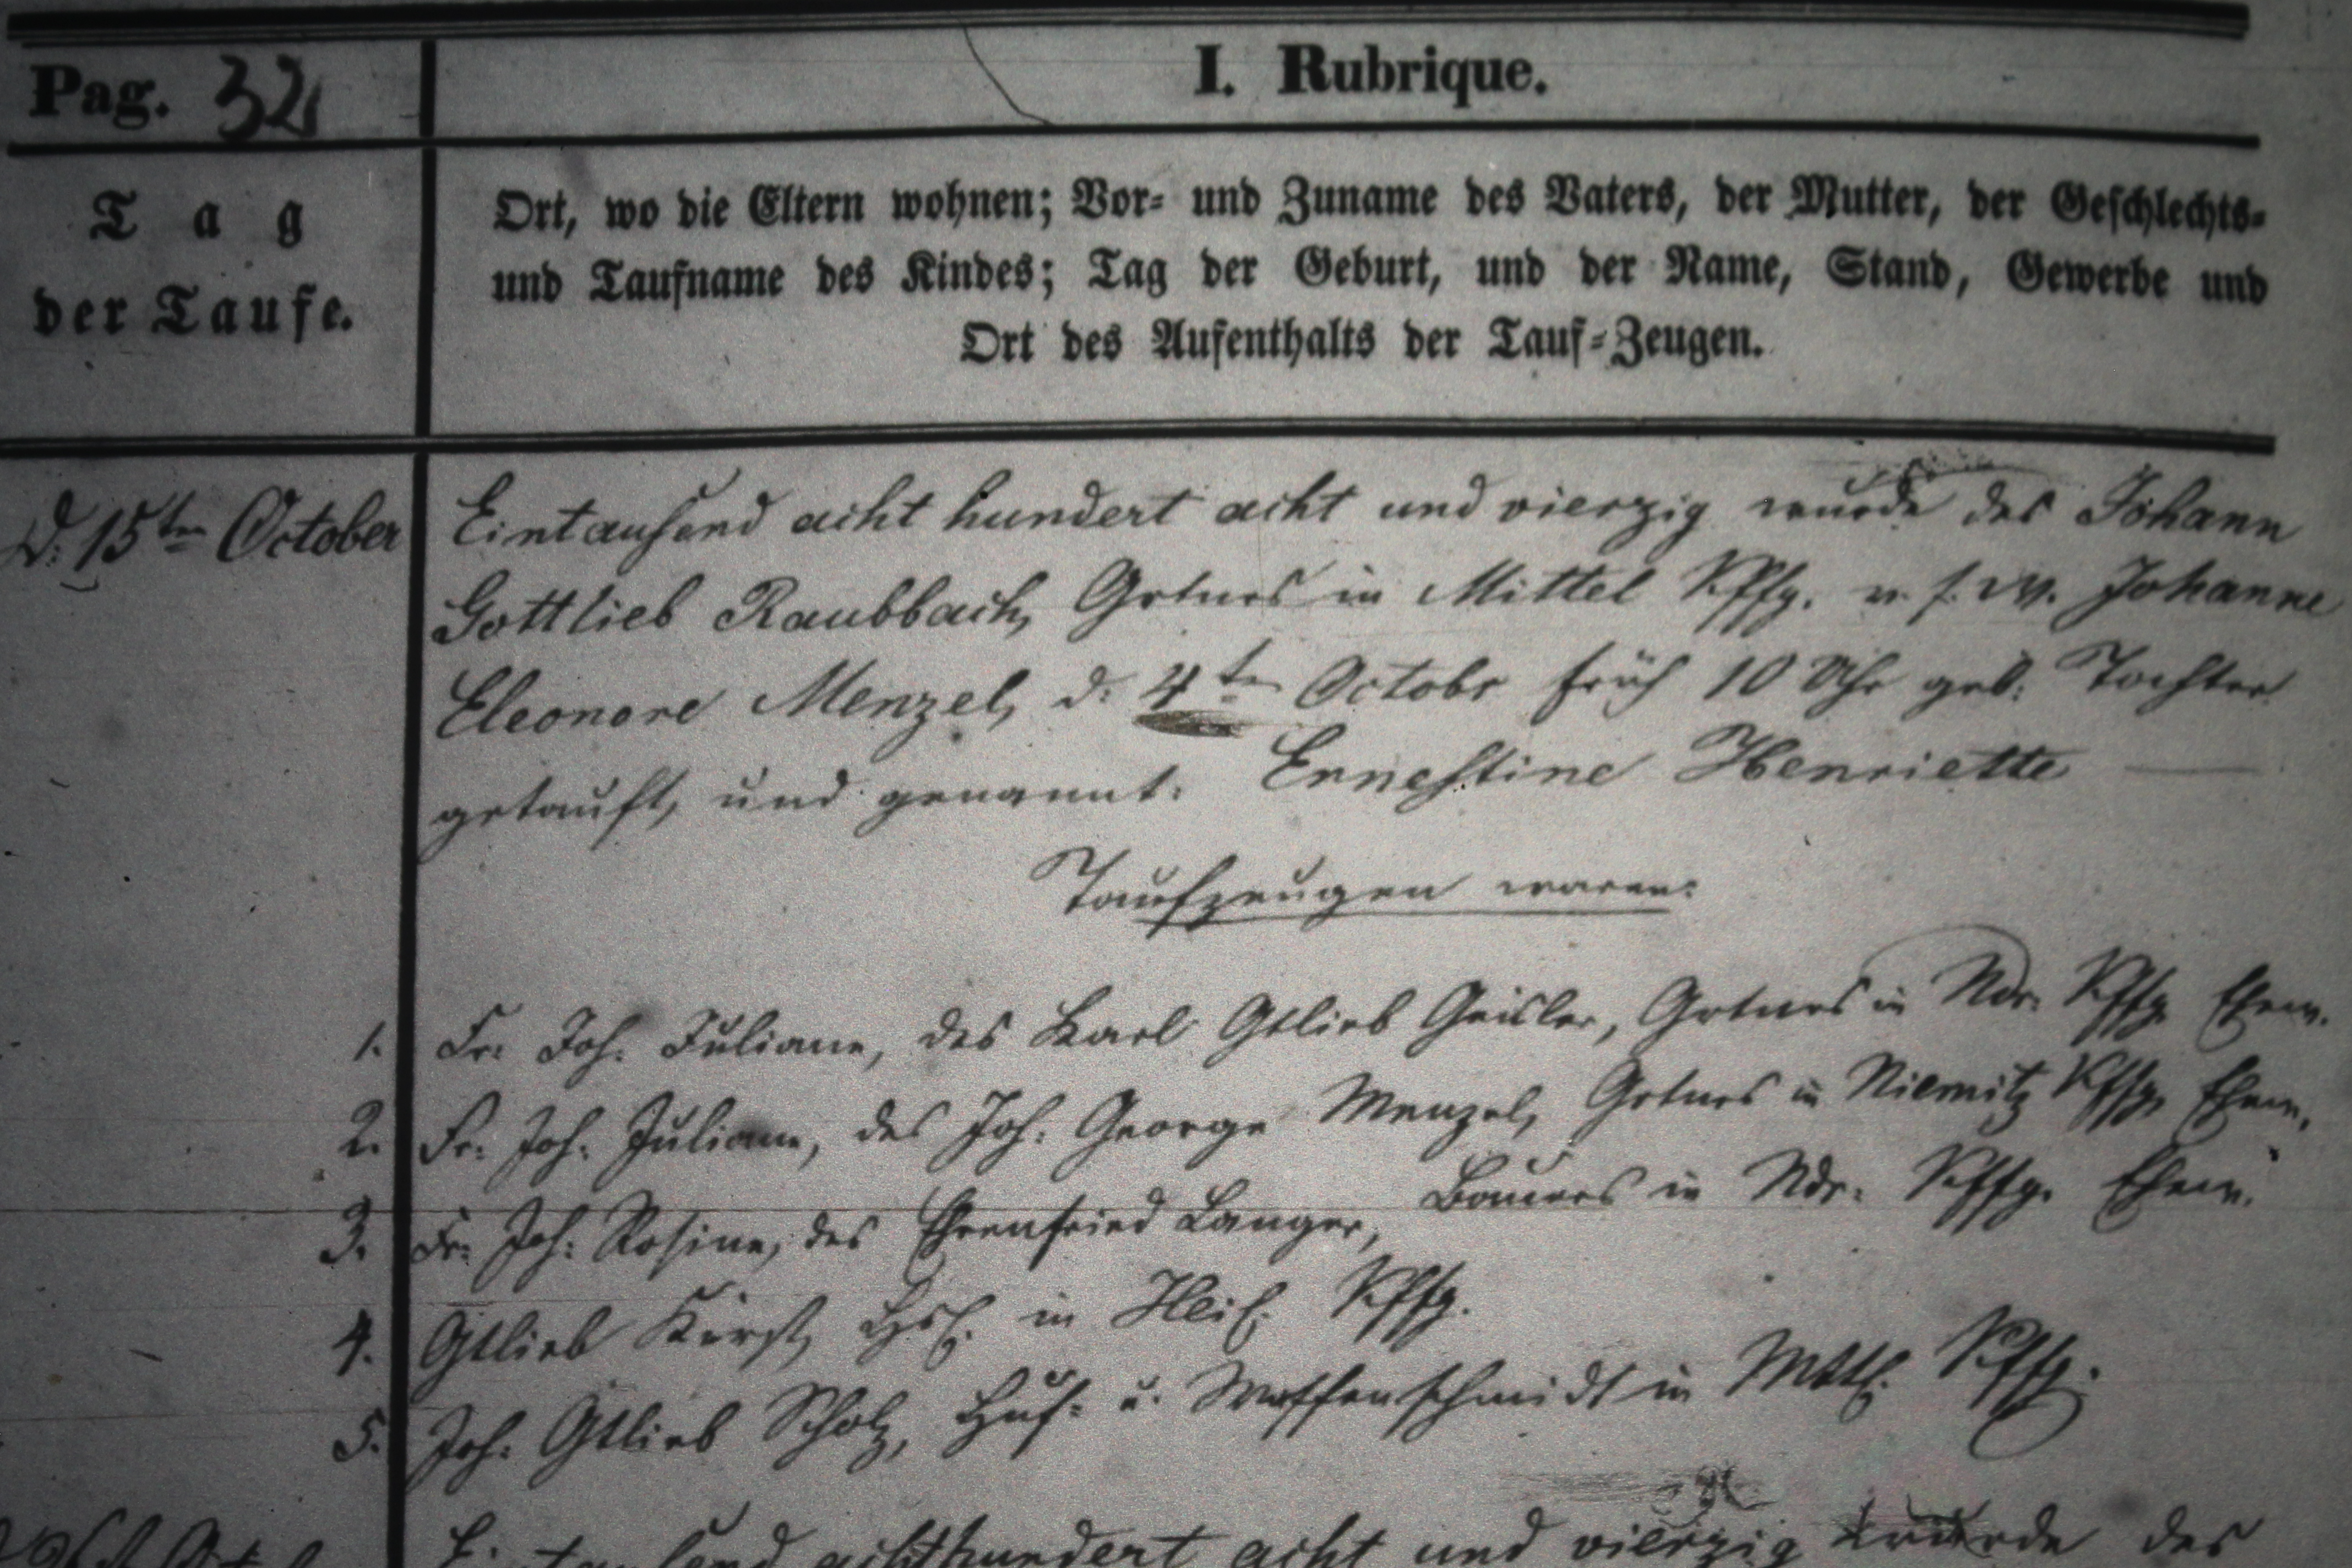 Pag. 32
I. Rubrique.
Tag
der Taufe.
Ort, wo die Eltern wohnen; Vor- und Zuname des Vaters, der Mutter, der Geschlechts-
und Taufname des Kindes; Tag der Geburt, und der Name, Stand, Gewerbe und
Ort des Aufenthalts der Tauf-Zeugen.
d. 15ten October
Eintausend acht hundert acht und vierzig wurde des Johann
Gottlieb Raubbach, Grtners in Mittel Kffg. u. s. W. Johanne
Eleonore Menzel, d. 4ten Octobr früh 10 Uhr geb. Tochter
getauft, und genannt: Ernestine Henriette
Taufzeugen waren:
1. Fr. Joh. Juliane, des Karl Gtlieb Geisler, Grtners in Ndr. Kffg. Ehew.
2. Fr. Joh. Juliane, des Joh. George Menzel, Grtners in Niemitz Kffg. Ehew.
3. Fr. Joh. Rosine, des Ehrenfried Langer, Bauers in Ndr. Kffg. Ehew.
4. Gtlieb Kirst, Hsl. in Kffg.
5. Joh. Gtlieb Scholz, Huf- u. Waffenschmidt in Mttl. Kffg.
Eintausend achthundert acht und vierzig wurde des